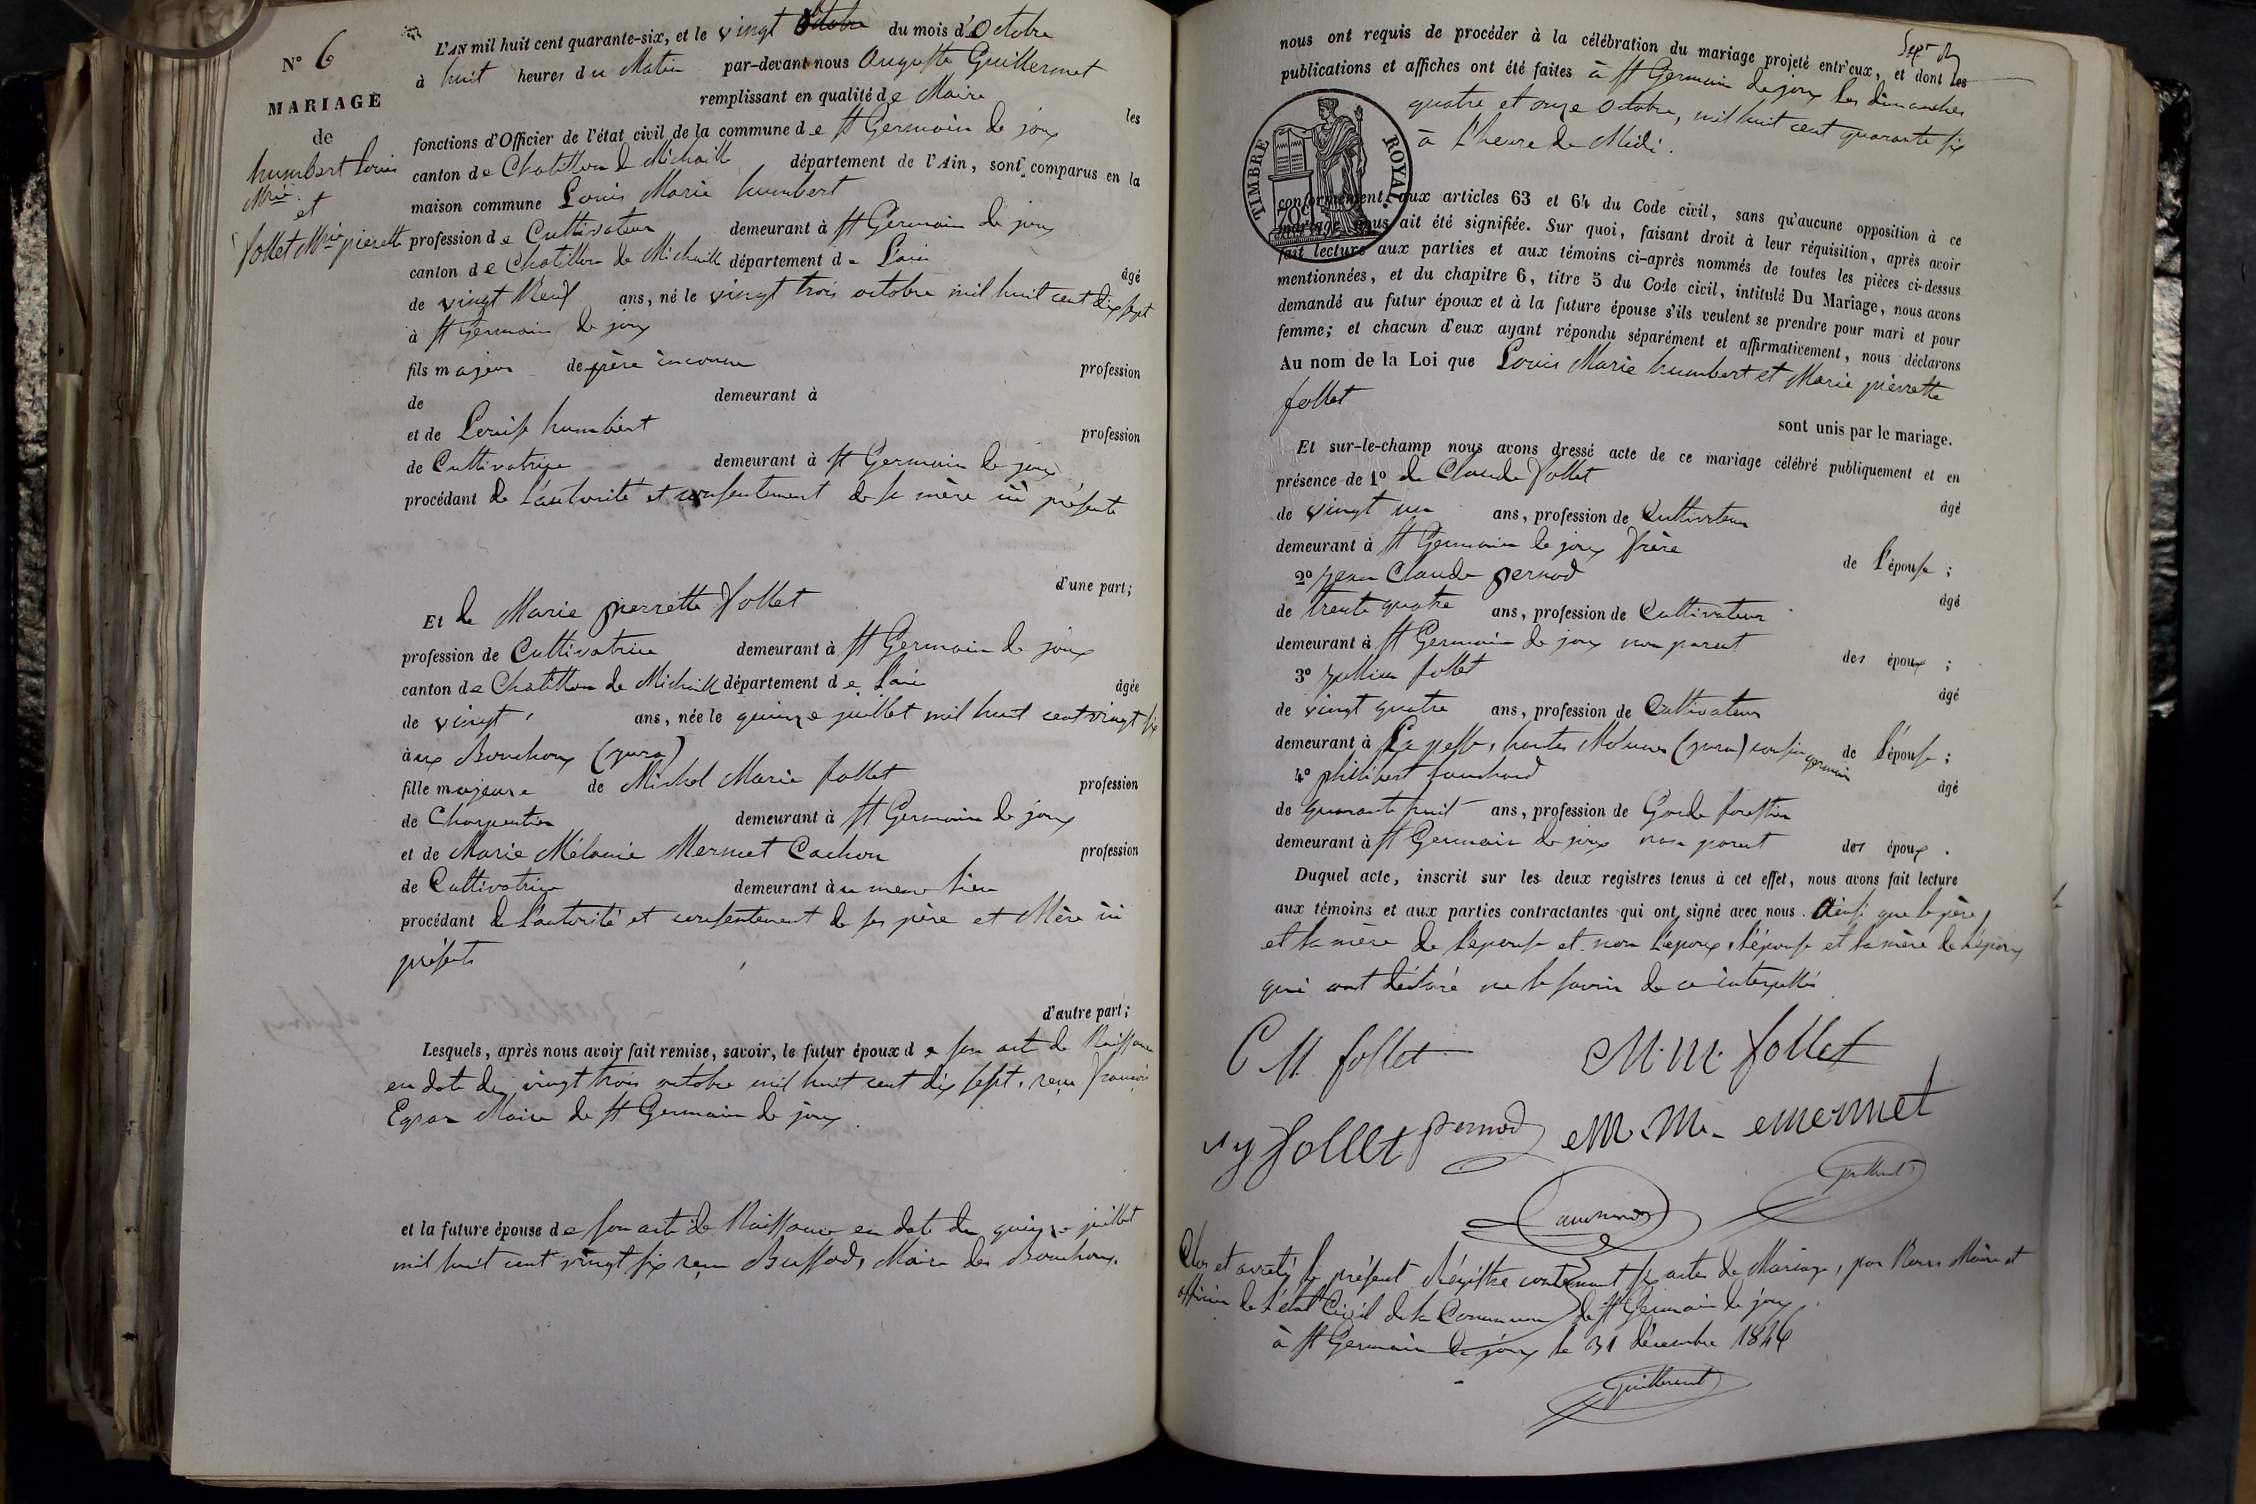 N° 6
MARIAGE
de
humbert Louis
Mrie
et
follet Mrie pierrette
L'AN mil huit cent quarante-six, et le vingt octobre du mois d'Octobre
à huit heures du Matin par-devant nous Auguste Guillermet
remplissant en qualité de Maire les
fonctions d'Officier de l'état civil de la commune de St Germain de joux
canton de Chatillon de Michaille département de l'Ain, sont comparus en la
maison commune Louis Marie humbert
profession de Cultivateur demeurant à St Germain de joux
canton de Chatillon de Michaille département de L'ain âgé
de vingt Neuf ans, né le vingt trois octobre mil huit cent dix sept
à St Germain de joux
fils majeur de père inconnu profession
de demeurant à
et de Louise humbert profession
de Cultivatrice demeurant à St Germain de joux
procédant de l'autorité et consentement de sa mère ici présente
d'une part;
Et de Marie pierrette follet
profession de Cultivatrice demeurant à St Germain de joux
canton de Chatillon de Michaille département de L'ain âgée
de vingt ans, née le quinze juillet mil huit cent vingt six
aux Bouchoux (jura)
fille majeure de Michel Marie follet profession
de Charpentier demeurant à St Germain de joux
et de Marie Mélanie Mermet Cachon profession
de Cultivatrice demeurant au meme lieu
procédant de l'autorité et consentement de ses père et Mère ici
présents
d'autre part;
Lesquels, après nous avoir fait remise, savoir, le futur époux de son acte de Naissance
en date du vingt trois octobre mil huit cent dix sept, reçu françois
Egraz Maire de St Germain de joux.
et la future épouse de son acte de Naissance en date du quinze juillet
mil huit cent vingt six reçu Buffard, Maire des Bouchoux.
nous ont requis de procéder à la célébration du mariage projeté entr'eux, et dont les
publications et affiches ont été faites à St Germain de joux les dimanches
quatre et onze octobre, mil huit cent quarante six
à l'heure de Midi.
TIMBRE ROYAL
conformément aux articles 63 et 64 du Code civil, sans qu'aucune opposition à ce
mariage nous ait été signifiée. Sur quoi, faisant droit à leur réquisition, après avoir
fait lecture aux parties et aux témoins ci-après nommés de toutes les pièces ci-dessus
mentionnées, et du chapitre 6, titre 5 du Code civil, intitulé Du Mariage, nous avons
demandé au futur époux et à la future épouse s'ils veulent se prendre pour mari et pour
femme; et chacun d'eux ayant répondu séparément et affirmativement, nous déclarons
Au nom de la Loi que Louis Marie humbert et Marie pierrette
follet
sont unis par le mariage.
Et sur-le-champ nous avons dressé acte de ce mariage célébré publiquement et en
présence de 1° de Claude follet âgé
de vingt un ans, profession de Cultivateur
demeurant à St Germain de joux frère de l'épouse;
2° jean Claude pernod âgé
de trente quatre ans, profession de Cultivateur
demeurant à St Germain de joux non parent des époux;
3° jullien follet âgé
de vingt quatre ans, profession de Cultivateur
demeurant à hautes Molunes (jura) cousin germain de l'épouse;
4° philibert âgé
de quarante huit ans, profession de Garde forestier
demeurant à St Germain de joux non parent des époux.
Duquel acte, inscrit sur les deux registres tenus à cet effet, nous avons fait lecture
aux témoins et aux parties contractantes qui ont signé avec nous. Ainsi que le père
et la mère de l'épouse et non l'époux, l'épouse et la mère de l'époux
qui ont déclaré ne le savoir de ce interpellés
C M follet M. M. follet
follet pernod M. M. mermet
Guillermet
Clos et arrêté le présent Régistre contenant six actes de Mariage, par Nous Maire et
officier de l'état Civil de la Commune de St Germain de joux
à St Germain de joux le 31 décembre 1846
Guillermet